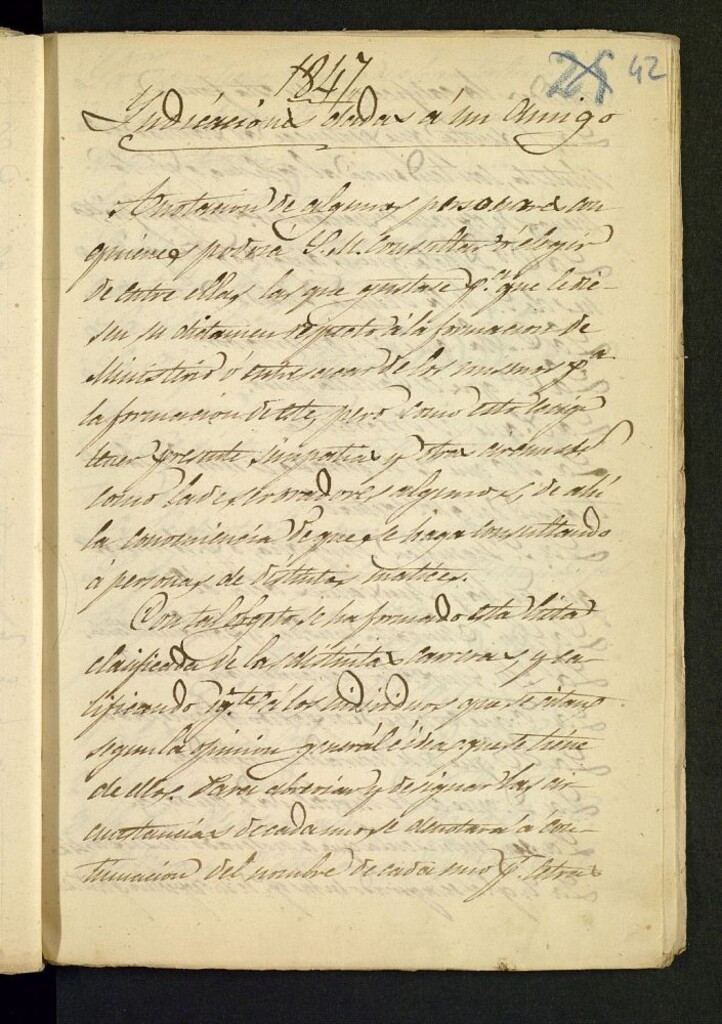 1847
25 42
Indicaciones dadas á un Amigo
Anotacion de algunas personas con
quienes podrá S.M. consultar ó elegir
de entre ellas las que gustase p.ª que le die-
sen su dictamen respecto á la formacion de
Ministerio ó entresacar de los mismos p.ª
la formacion de este, pero como esto exige
tener presente simpatias y otras
como la de ser oradores algunos, de ahí
la conveniencia de que se haga consultando
á personas de distintos matices.
Con tal objeto se ha formado esta lista
clasificada de las distintas carreras, y ca-
lificando á los individuos que se citan
segun la opinion general é idea que se tiene
de ellos. Para abreviar y designar las cir-
cunstancias de cada uno se denotará á con-
tinuación del nombre de cada uno p.r letras